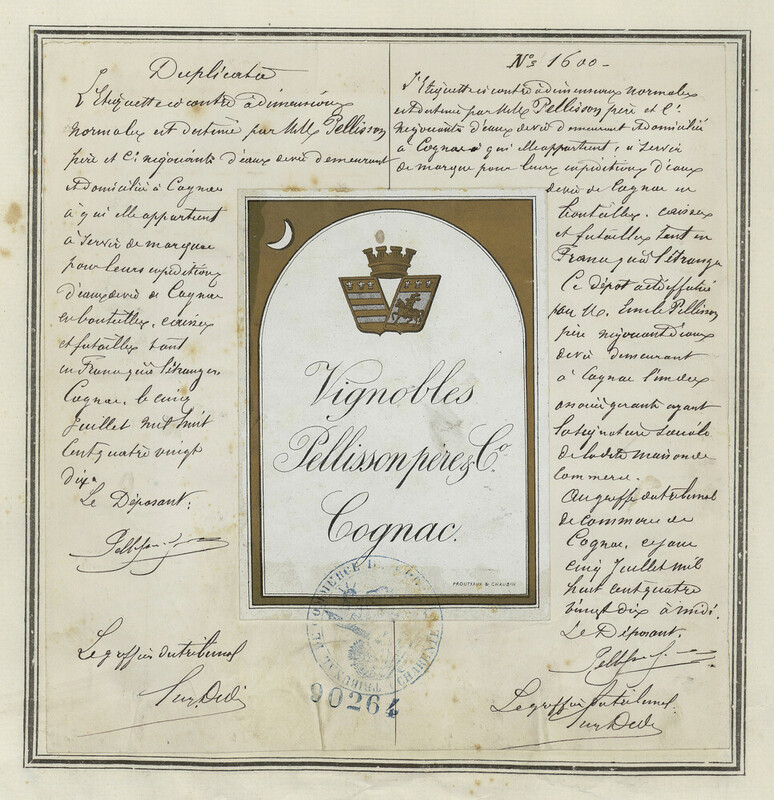 Duplicata
L'Etiquette ci contre à dimensions
normales est destinée par MM. Pellisson
père et Cie négociants d'eaux de vie demeurant
et domiciliés à Cognac
à qui elle appartient
à servir de marque
pour leurs expéditions
d'eaux de vie de Cognac
en bouteilles, caisses
et futailles tant
en France qu'à l'étranger
Cognac, le cinq
Juillet mil huit
cent quatre vingt
dix.
Le Déposant:
Le greffier du tribunal
Nos 1600 -
L'Etiquette ci contre à dimensions normales
est destinée par MM. Pellisson père et Cie
négociants d'eaux de vie demeurant et domiciliés
à Cognac à qui elle appartient, à servir
de marque pour leurs expéditions d'eaux
de vie de Cognac en
bouteilles, caisses
et futailles tant en
France qu'à l'étranger
Ce dépôt a été effectué
par M. Emile Pellisson
père négociant d'eaux
de vie demeurant
à Cognac l'un des
associés gérants ayant
la signature sociale
de la dite maison de
commerce.
Au greffe du tribunal
de commerce de
Cognac, ce jour
cinq Juillet mil
huit cent quatre
vingt dix à midi.
Le Déposant.
Le greffier du tribunal
Vignobles
Pellisson père & Co.
Cognac.
PROUTEAUX & CHAUBIN
TRIBUNAL DE COMMERCE DE COGNAC
CHARENTE
90264